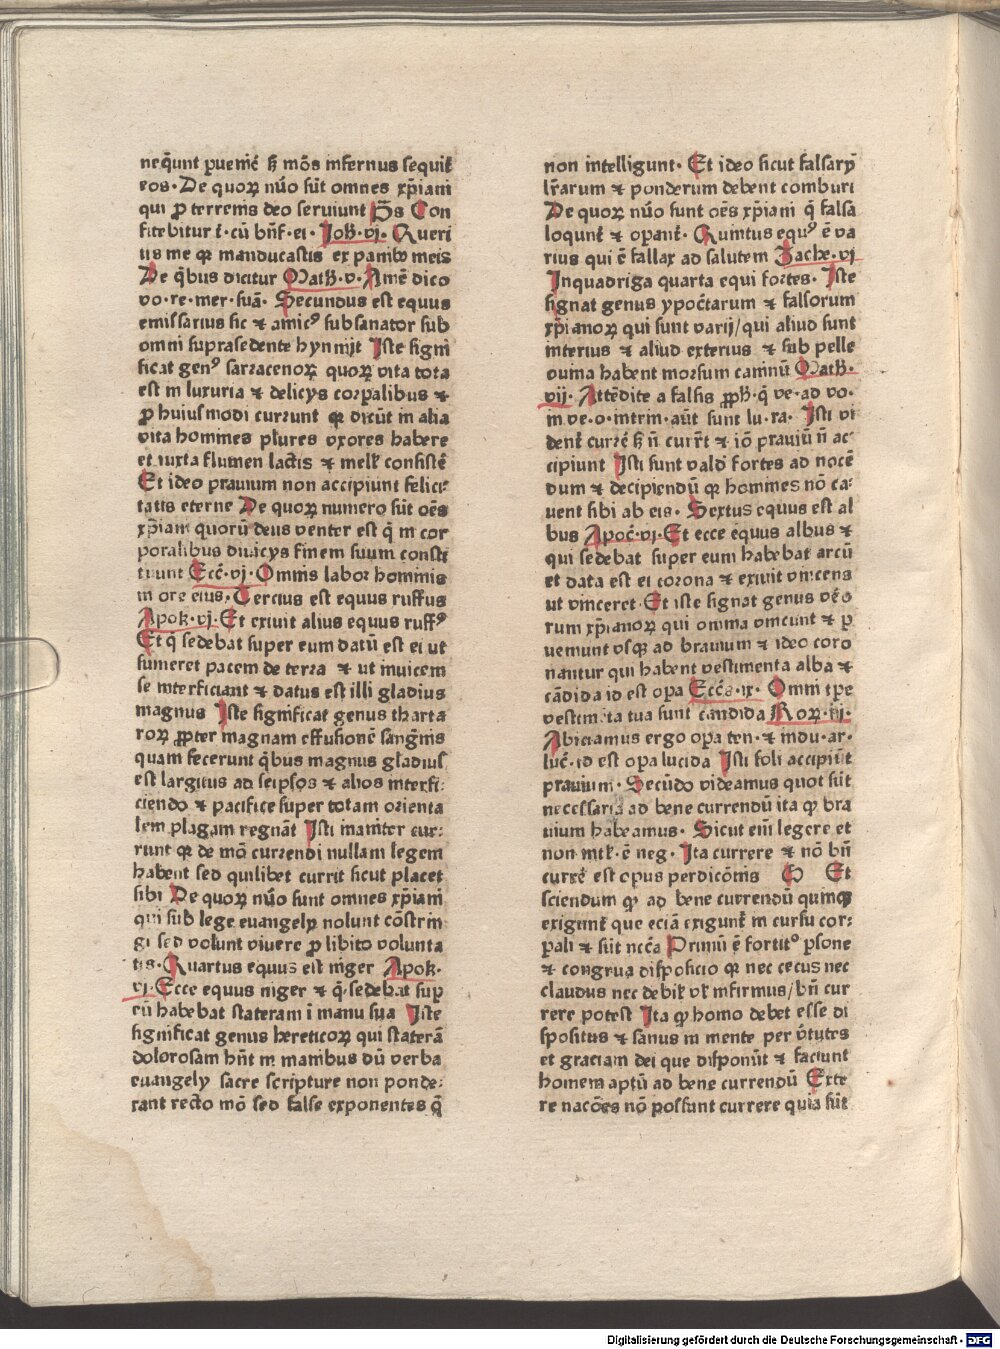 neq̃unt ꝑuenić ꝫ mõs infernus sequiť
eos·De quoꝝ nũo sũt omnes xp̃iani
qui ꝓ terrenis deo seruiunt p̃s Con
fitebitur ť·cũ bñf·ei· Joh̃·vj· Queri
tis me qꝛ manducastis ex panibꝰ meis
De q̃bus dicitur Math̃·v· Amẽ dico
vo·re·mer·suã· Secundus est equus
emissarius sic ⁊ amicꝰ subsanator sub
omni suprasedente hynnijt Iste signi
ficat genꝰ sarracenoꝝ quoꝝ vita tota
est in luxuria ⁊ delicijs corꝑalibus ⁊
ꝓ huiusmodi currunt qꝛ dicũt in alia
vita homines plures vxores habere
et iuxta flumen lactis ⁊ mell' consistẽ
Et ideo prauium non accipiunt felici:
tatis eterne De quoꝝ numero sũt oẽs
xp̃iani quorũ deus venter est q̃ in cor
poralibus diuicijs finem suum consti
tuunt Ecc̃·vj· Omnis labor hominis
in ore eius, Tercius est equus ruffus
Apok·vj· Et exiuit alius equus ruffꝰ
Et q̃ sedebat super eum datũ est ei ut
sumeret pacem de terra ⁊ ut inuicem
se interficiant ⁊ datus est illi gladius
magnus Iste significat genus tharta
roꝝ ꝓpter magnam effusionẽ sangīnis
quam fecerunt q̃bus magnus gladius
est largitus ad seipsos ⁊ alios interfi:
ciendo ⁊ pacifice super totam orienta
lem plagam regnãt Isti inaniter cur:
runt qꝛ de mõ currendi nullam legem
habent sed quilibet currit sicut placet
sibi De quoꝝ nũo sunt omnes xp̃iani
qui sub lege euangelij nolunt cõstrin
gi sed volunt viuere ꝓ libito volunta
tis· Quartus equus est niger Apok·
vj· Ecce equus niger ⁊ q̃ sedebat suꝑ
eũ habebat stateram ĩ manu sua Iste
significat genus hereticoꝝ qui staterã
dolorosam hñt in manibus dũ verba
euangelij sacre scripture non ponde:
rant recto mõ sed false exponentes q̃
non intelligunt· Et ideo sicut falsarij
lr̃arum ⁊ ponderum debent comburi
De quoꝝ nũo sunt oẽs xp̃iani q̃ falsa
loqunť ⁊ oꝑanť· Quintus equꝰ ẽ va
rius qui ẽ fallax ad salutem Zache·vj
In quadriga quarta equi fortes· Iste
signat genus ypoc̃tarum ⁊ falsorum
xp̃ianoꝝ qui sunt varij/qui aliud sunt
interius ⁊ aliud exterius ⁊ sub pelle
ouina habent morsum caninũ Math̃·
vij· Attẽdite a falsis ꝓph̃·q̃ ve·ad vo·
in ve·o·intrin·aũt sunt lu·ra· Isti vi
denť curr̃e ꝫ ñ curr̃t ⁊ iõ prauiũ ñ ac
cipiunt Isti sunt valde fortes ad nocẽ
dum ⁊ decipiendũ qꝛ homines nõ ca:
uent sibi ab eis· Sextus equus est al
bus Apoc̃·vj· Et ecce equus albus ⁊
qui sedebat super eum habebat arcũ
et data est ei corona ⁊ exiuit vincens
ut vinceret· Et iste signat genus vẽo
rum xp̃ianoꝝ qui omnia vincunt ⁊ ꝑ
ueniunt vsqꝫ ad brauium ⁊ ideo coro
nantur qui habent vestimenta alba ⁊
cãdida id est oꝑa Ecc̃s·ix· Omni tp̃e
vestim̃ta tua sunt candida Roꝝ·
Abiciamus ergo oꝑa ten·⁊ indu·ar·
luc̃·id est oꝑa lucida Isti soli accipiũt
prauium· Secũdo videamus quot sũt
necessaria ad bene currendũ ita qꝫ bra
uium habeamus· Sicut eni legere et
non intll̃·ẽ neg· Ita currere ⁊ nõ bñ
curr̃e est opus perdicõnis Et
sciendum qꝫ ad bene currendũ quinqꝫ
exigunť que eciã exigunť in cursu cor:
ꝑali ⁊ sũt nccã Primũ ẽ fortit° ꝑsone
⁊ congrua disposicio qꝛ nec cecus nec
claudus nec debil' vl' infirmus/bñ cur
rere potest Ita qꝫ homo debet esse di
spositus ⁊ sanus in mente per v̾tutes
et graciam dei que disponũt ⁊ faciunt
hominem aptũ ad bene currendũ Exte
re nacões nõ possunt currere quia sũt
Digitalisierung gefördert durch die Deutsche Forschungsgemeinschaft - DFG